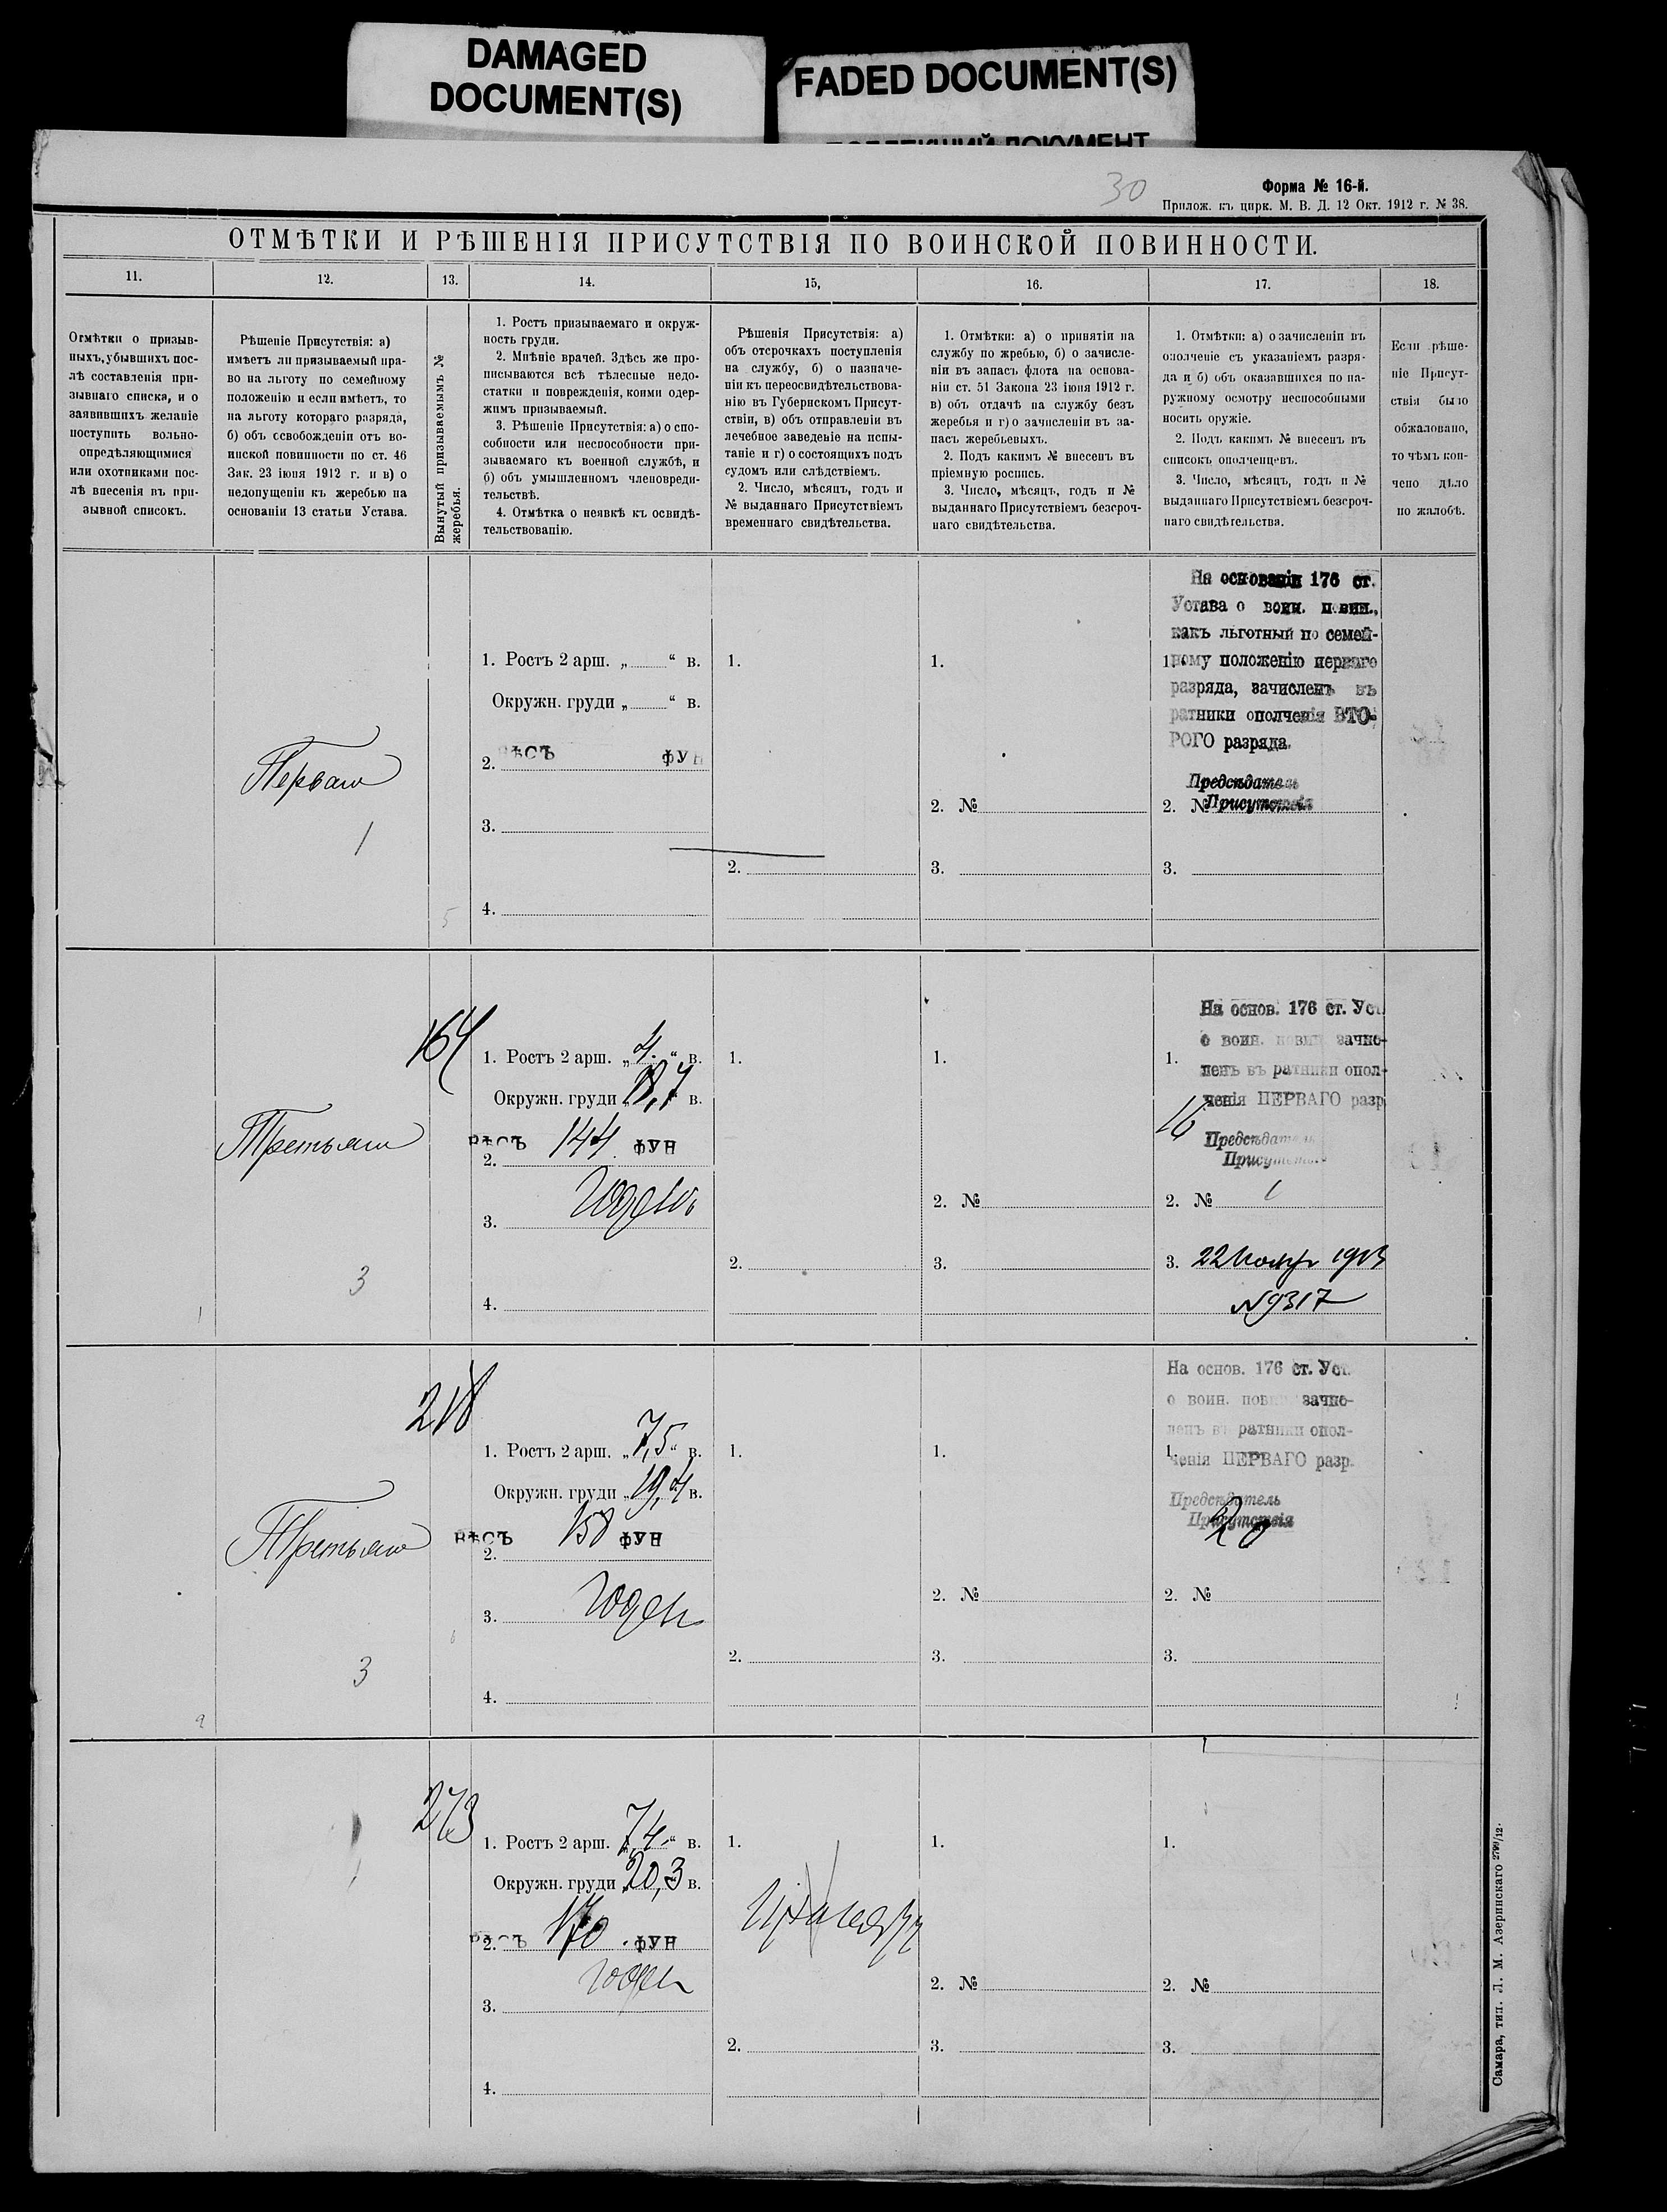 DAMAGED
DOCUMENT(S)
FADED DOCUMENT(S)
ДОКУМЕНТ
30
Форма № 16-й.
Прилож. къ цирк. М. В. Д. 12 Окт. 1912 г. № 38.
ОТМѢТКИ И РѢШЕНІЯ ПРИСУТСТВІЯ ПО ВОИНСКОЙ ПОВИННОСТИ.
11.
12.
13.
14.
15,
16.
17.
18.
Отмѣтки о призыв-
ныхъ, убывшихъ пос-
лѣ составленія при-
зывнаго списка, и о
заявившихъ желаніе
поступить вольно-
опредѣляющимися
или охотниками пос-
лѣ внесенія въ при-
зывной списокъ.
Рѣшеніе Присутствія: а)
имѣетъ ли призываемый пра-
во на льготу по семейному
положенію и если имѣетъ, то
на льготу котораго разряда,
б) объ освобожденіи отъ во-
инской повинности по ст. 46
Зак. 23 іюня 1912 г. и в) о
недопущеніи къ жеребью на
основаніи 13 статьи Устава.
Вынутый призываемымъ №
жеребья.
1. Ростъ призываемаго и окруж-
ность груди.
2. Мнѣніе врачей. Здѣсь же про-
писываются всѣ тѣлесные недо-
статки и поврежденія, коими одер-
жимъ призываемый.
3. Рѣшеніе Присутствія: а) о спо-
собности или неспособности при-
зываемаго къ военной службѣ, и
б) объ умышленномъ членовреди-
тельствѣ.
4. Отмѣтка о неявкѣ къ освидѣ-
тельствованію.
Рѣшенія Присутствія: а)
объ отсрочкахъ поступленія
на службу, б) о назначе-
ніи къ переосвидѣтельствова-
нію въ Губернскомъ Присут-
ствіи, в) объ отправленіи въ
лечебное заведеніе на испы-
таніе и г) о состоящихъ подъ
судомъ или слѣдствіемъ.
2. Число, мѣсяцъ, годъ и
№ выданнаго Присутствіемъ
временнаго свидѣтельства.
1. Отмѣтки: а) о принятіи на
службу по жребью, б) о зачисле-
ніи въ запасъ флота на основа-
ніи ст. 51 Закона 23 іюня 1912 г.
в) объ отдачѣ на службу безъ
жеребья и г) о зачисленіи въ за-
пасъ жеребьевыхъ.
2. Подъ какимъ № внесенъ въ
пріемную роспись.
3. Число, мѣсяцъ, годъ и №
выданнаго Присутствіемъ безсроч-
наго свидѣтельства.
1. Отмѣтки: а) о зачисленіи въ
ополченіе съ указаніемъ разря-
да и б) объ оказавшихся по на-
ружному осмотру неспособными
носить оружіе.
2. Подъ какимъ № внесенъ въ
списокъ ополченцевъ.
3. Число, мѣсяцъ, годъ и №
выданнаго Присутствіемъ безсроч-
наго свидѣтельства.
Если рѣше-
ніе Присут-
ствія было
обжаловано,
то чѣмъ кон-
чено дѣло
по жалобѣ.
Первый
1
5
1. Ростъ 2 арш. „ “ в.
Окружн. груди „ “ в.
ВѢСЪ ФУН
2.
3.
4.
1.
2.
1.
2. №
3.
На основаніи 176 ст.
Устава о воин. повин.,
какъ льготный по семей-
1. ному положенію перваго
разряда, зачисленъ въ
ратники ополченія ВТО-
РОГО разряда.
Предсѣдатель
Присутствія
2. №
3.
164
3
1. Ростъ 2 арш. „4.“ в.
Окружн. груди „18,7 в.
ВѢСЪ 144 ФУН
2.
3. Годенъ
4.
1.
2.
1.
2. №
3.
На основ. 176 ст. Уст.
о воин. повин. зачис-
1.
ленъ въ ратники опол-
ченія ПЕРВАГО разр.
16
Предсѣдатель
Присутствія
2. №
3. 22 Ноябр 1913
№ 9317
218
3
1. Ростъ 2 арш. „7,5“ в.
Окружн. груди „19,4 в.
ВѢСЪ 158 ФУН
2.
3. Годен
4.
1.
2.
1.
2. №
3.
На основ. 176 ст. Уст.
о воин. повин. зачис-
ленъ въ ратники опол-
1.
ченія ПЕРВАГО разр.
Предсѣдатель
Присутствія
20
2. №
3.
273
1. Ростъ 2 арш. „7,4.“ в.
Окружн. груди „20,3 в.
ВѢСЪ 170 ФУН
2.
годен
3.
4.
1.
2.
1.
2. №
3.
1.
2. №
3.
Самара, тип. Л. М. Азеринскаго 2799/12.